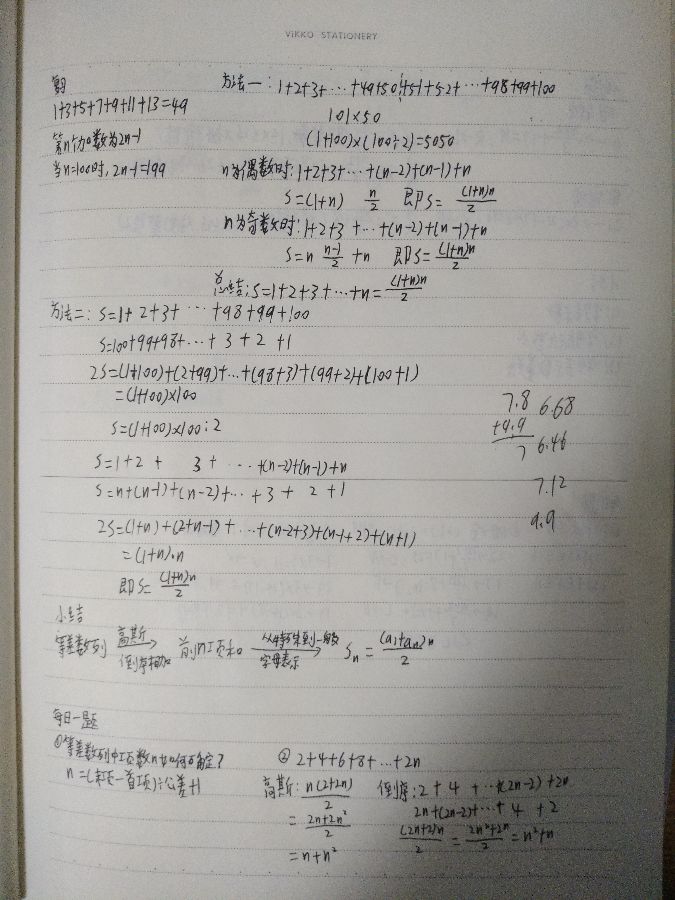 ViKKO STATIONERY
1+3+5+7+9+11+13=49
第n个加数为2n-1
当n=100时, 2n-1=199
方法一: 1+2+3+…+49+50+51+52…+98+99+100
101×50
(1+100)×(100÷2)=5050
n为偶数时: 1+2+3+…+(n-2)+(n-1)+n
S=(1+n) n/2 即S=(1+n)n/2
n为奇数时: 1+2+3+…+(n-2)+(n-1)+n
S=n (n-1)/2 +n 即S=(1+n)n/2
总结: S=1+2+3+…+n=(1+n)n/2
方法二: S=1+2+3+…+98+99+100
S=100+99+98+…+3+2+1
2S=(1+100)+(2+99)+…+(98+3)+(99+2)+(100+1)
=(1+100)×100
S=(1+100)×100÷2
S=1+2+3+…+(n-2)+(n-1)+n
S=n+(n-1)+(n-2)+…+3+2+1
2S=(1+n)+(2+n-1)+…+(n-2+3)+(n-1+2)+(n+1)
=(1+n)·n
即S=(1+n)n/2
7.8 6.68
+9.9
7 6.46
7.12
9.9
小结
等差数列 高斯 倒序相加 → 前n项和 从特殊到一般 字母表示 → Sn=(a1+an)n/2
每日一题
①等差数列中项数n如何确定?
n=(末项-首项)÷公差+1
②2+4+6+8+…+2n
高斯: n(2+2n)/2
=2n+2n²/2
=n+n²
倒序: 2+4+…+(2n-2)+2n
2n+(2n-2)+…+4+2
(2n+2)n/2=2n²+2n/2=n²+n